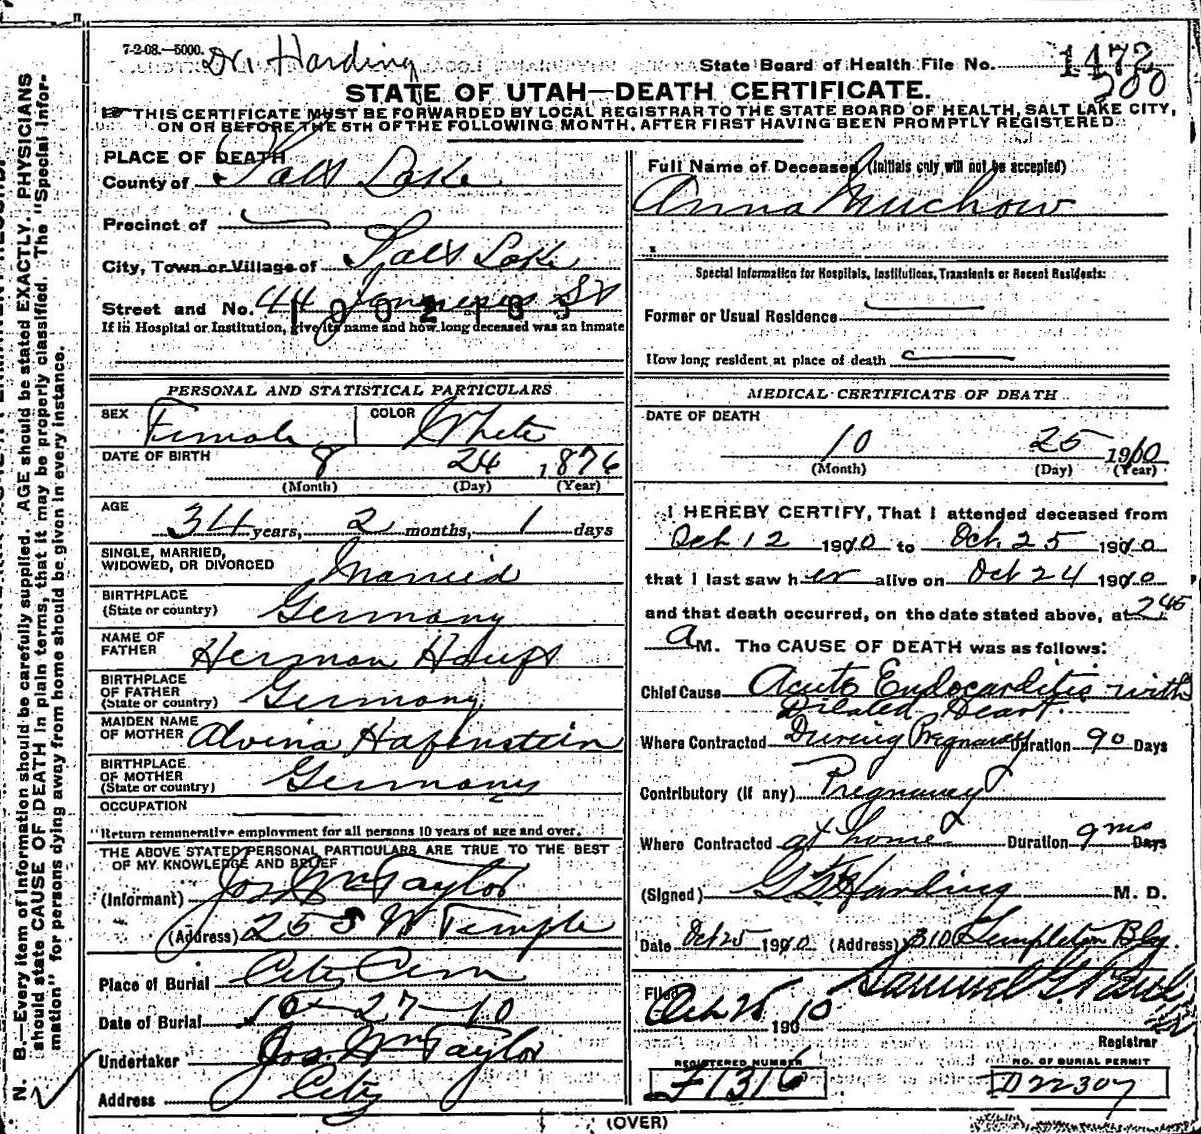 7-2-08.—5000.
Dr. Harding
State Board of Health File No. 1472
200
STATE OF UTAH—DEATH CERTIFICATE.
THIS CERTIFICATE MUST BE FORWARDED BY LOCAL REGISTRAR TO THE STATE BOARD OF HEALTH, SALT LAKE CITY,
ON OR BEFORE THE 5TH OF THE FOLLOWING MONTH, AFTER FIRST HAVING BEEN PROMPTLY REGISTERED
PLACE OF DEATH
County of Salt Lake
Precinct of
City, Town or Village of Salt Lake
Street and No. 44 St
1002185
If in Hospital or Institution, give its name and how long deceased was an inmate
Full Name of Deceased (Initials only will not be accepted)
Anna Muchow
Special Information for Hospitals, Institutions, Transients or Recent Residents:
Former or Usual Residence
How long resident at place of death
PERSONAL AND STATISTICAL PARTICULARS
SEX Female COLOR White
DATE OF BIRTH 8 24 1876
(Month) (Day) (Year)
AGE
34 years, 2 months, 1 days
SINGLE, MARRIED,
WIDOWED, OR DIVORCED Married
BIRTHPLACE
(State or country) Germany
NAME OF
FATHER Herman Haupt
BIRTHPLACE
OF FATHER
(State or country) Germany
MAIDEN NAME
OF MOTHER Alvina Hafenstein
BIRTHPLACE
OF MOTHER
(State or country) Germany
OCCUPATION
Return remunerative employment for all persons 10 years of age and over.
THE ABOVE STATED PERSONAL PARTICULARS ARE TRUE TO THE BEST
OF MY KNOWLEDGE AND BELIEF
(Informant) Jos Wm Taylor
(Address) 25 S W Temple
Place of Burial City Cem
Date of Burial 10-27-10
Undertaker Jos. Wm Taylor
Address City
MEDICAL CERTIFICATE OF DEATH
DATE OF DEATH
10 25 1910
(Month) (Day) (Year)
I HEREBY CERTIFY, That I attended deceased from
Oct 12 1910 to Oct. 25 1910
that I last saw her alive on Oct 24 1910
and that death occurred, on the date stated above, at 2 45
A M. The CAUSE OF DEATH was as follows:
Chief Cause Acute Endocarditis with
Dilated Heart.
Where Contracted During Pregnancy Duration 90 Days
Contributory (if any) Pregnancy
Where Contracted at home Duration 9 mos Days
(Signed) Harding M. D.
Date Oct 25 1910 (Address) 310 Templeton Blg.
Filed Oct 25 1910 Samuel G. Paul
Registrar
REGISTERED NUMBER
F1316
NO. OF BURIAL PERMIT
D22307
(OVER)
N. B.—Every item of information should be carefully supplied. AGE should be stated EXACTLY. PHYSICIANS
should state CAUSE OF DEATH in plain terms, that it may be properly classified. The "Special Infor-
mation" for persons dying away from home should be given in every instance.